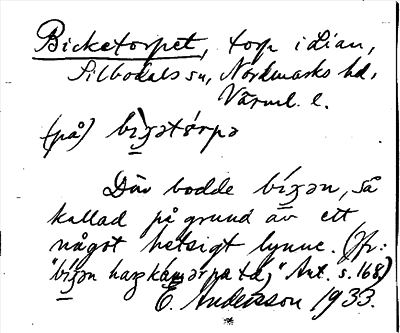 Bicketorpet, torp i Lian,
Silbodals sn, Nordmarks hd,
Värml. l.
(på) bìʒətórpə
Där bodde bíʒən, så
kallad på grund av ett
något hetsigt lynne. (Jfr:
"bíʒən haʒ Ant. s. 168)
E. Andersson 1933.